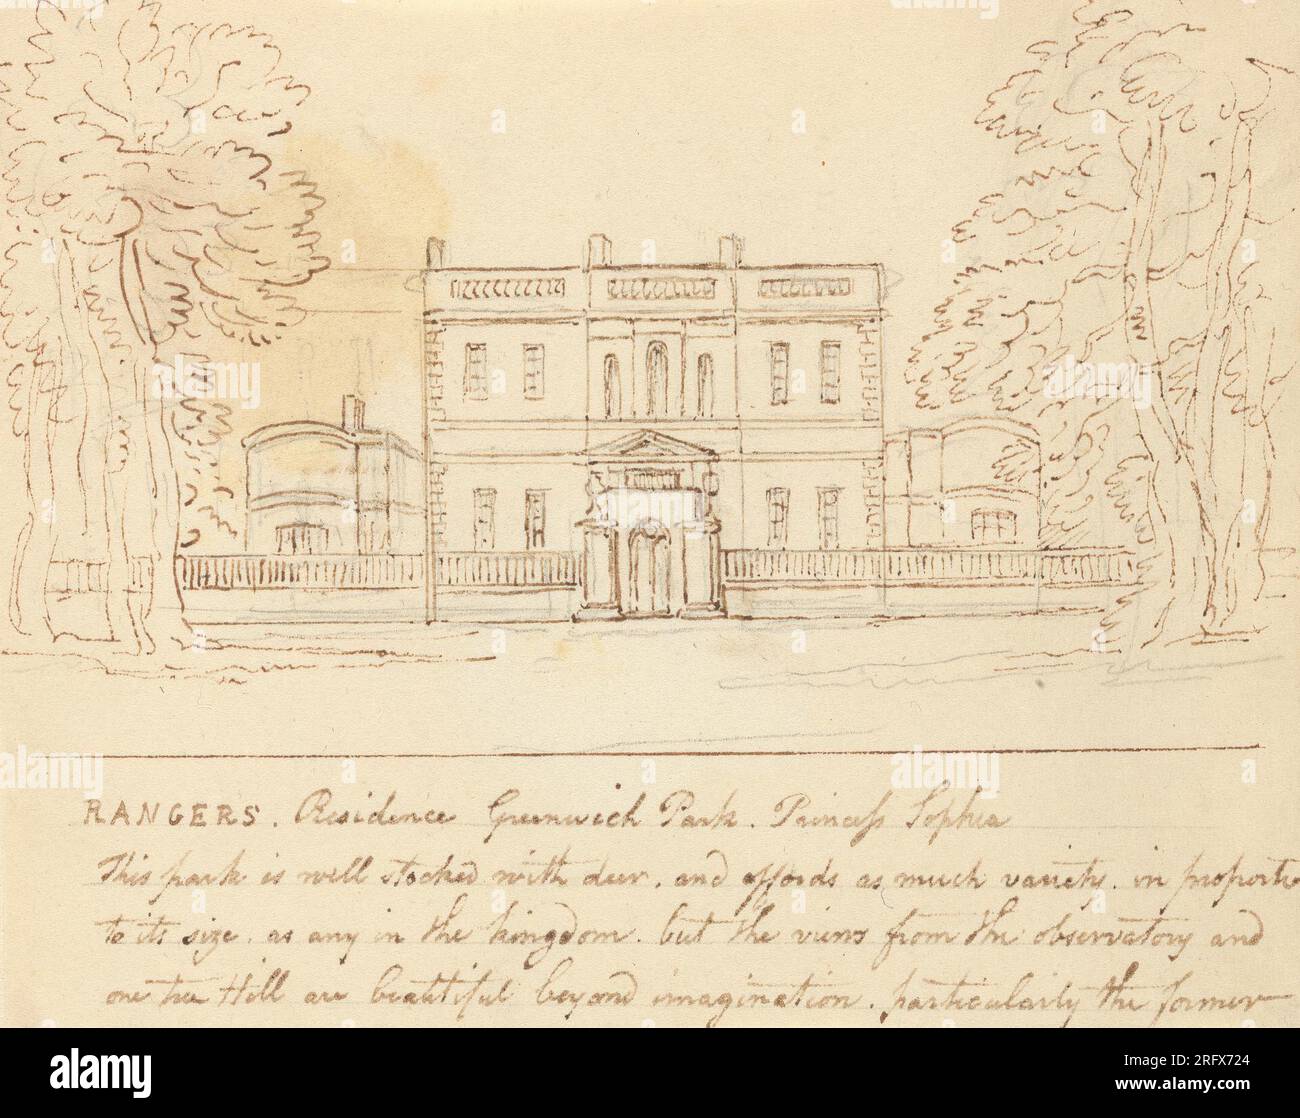 RANGERS. Residence Greenwich Park. Princess Sophia
This park is well stocked with deer. and affords as much variety. in proportio
to its size. as any in the kingdom. but the views from the observatory and
one tree Hill are beautiful beyond imagination. particularly the former
alamy
Image ID: 2RFX724
www.alamy.com